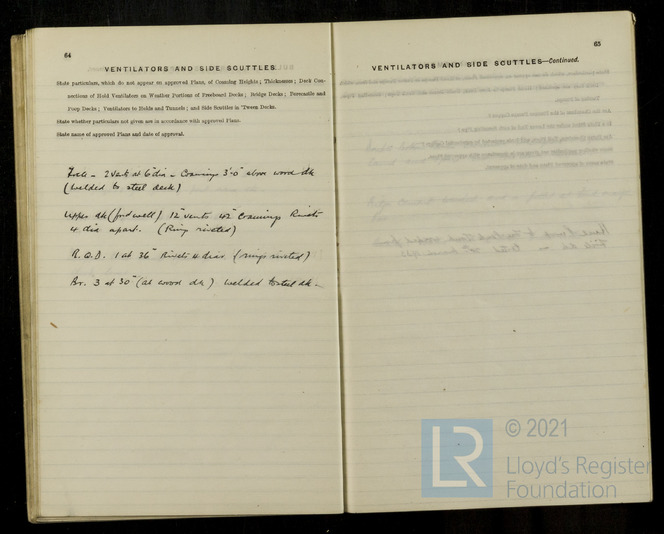 64
VENTILATORS AND SIDE SCUTTLES
State particulars, which do not appear on approved Plans, of Coaming Heights; Thicknesses; Deck Con-
nections of Hold Ventilators on Weather Portions of Freeboard Decks; Bridge Decks; Forecastle and
Poop Decks; Ventilators to Holds and Tunnels; and Side Scuttles in 'Tween Decks.
State whether particulars not given are in accordance with approved Plans.
State name of approved Plans and date of approval.
2 Vents at 6 dia - Coamings 3'.0" above wood dk
(welded to steel deck)
Upper dk (fwd well) 12" vents 42" Coamings Rivets
4 dia apart. (Ring riveted)
R.Q.D. 1 at 36" Rivets 4 dias (rings riveted)
Br. 3 at 30" (at wood dk) welded to steel dk -
65
VENTILATORS AND SIDE SCUTTLES—Continued.
© 2021
LR
Lloyd's Register
Foundation